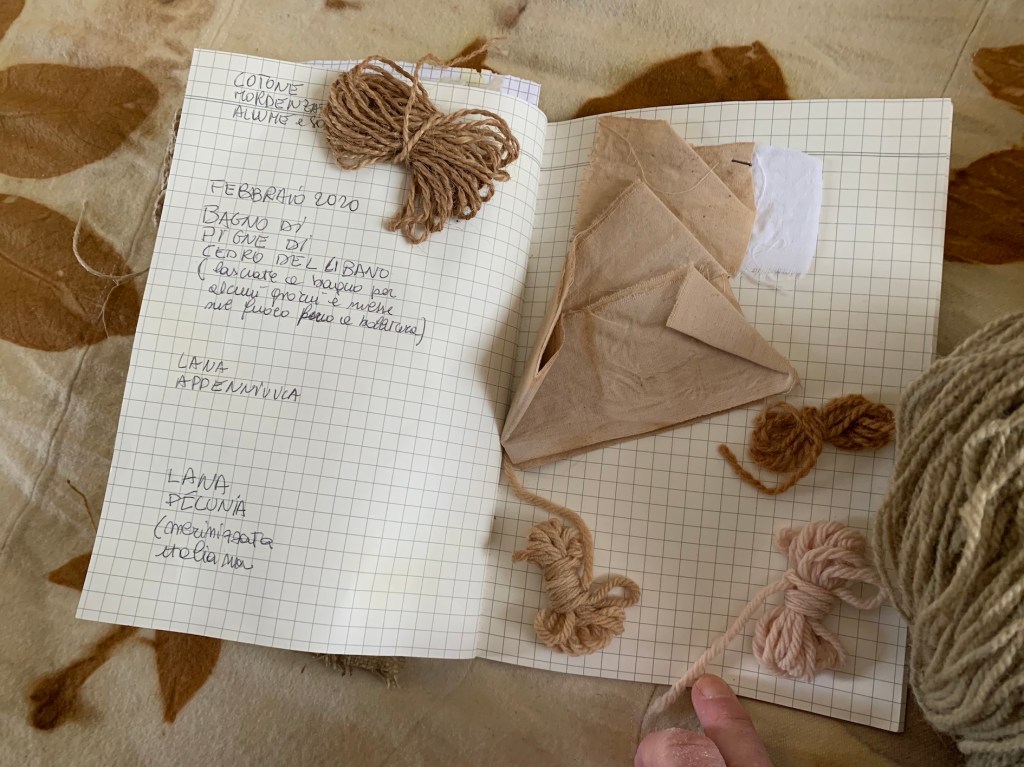 COTONE
MORDENZA
ALLUME e
FEBBRAIO 2020
BAGNO DI
PIGNE DI
CEDRO DEL LIBANO
(lasciate a bagno per
alcuni giorni e messe
sul fuoco fino a bollitura)
LANA
APPENNINICA
LANA
PECUNIA
(merinizzata
italiana